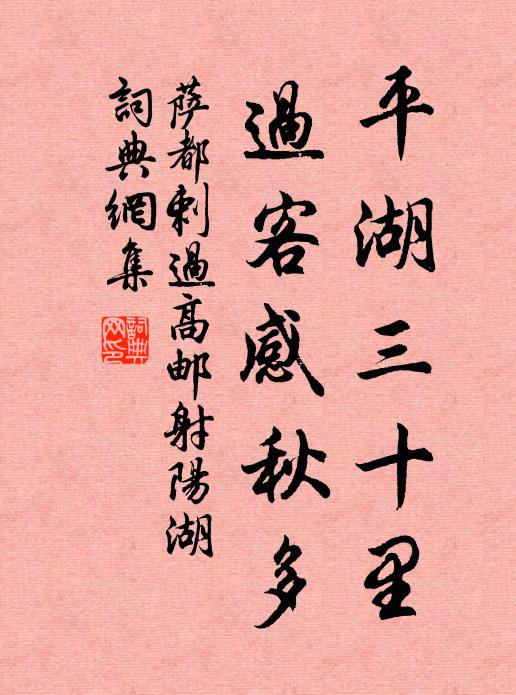 平湖三十里
過客感秋多
薩都剌過高邮射陽湖
詞典網集
詞典
网印